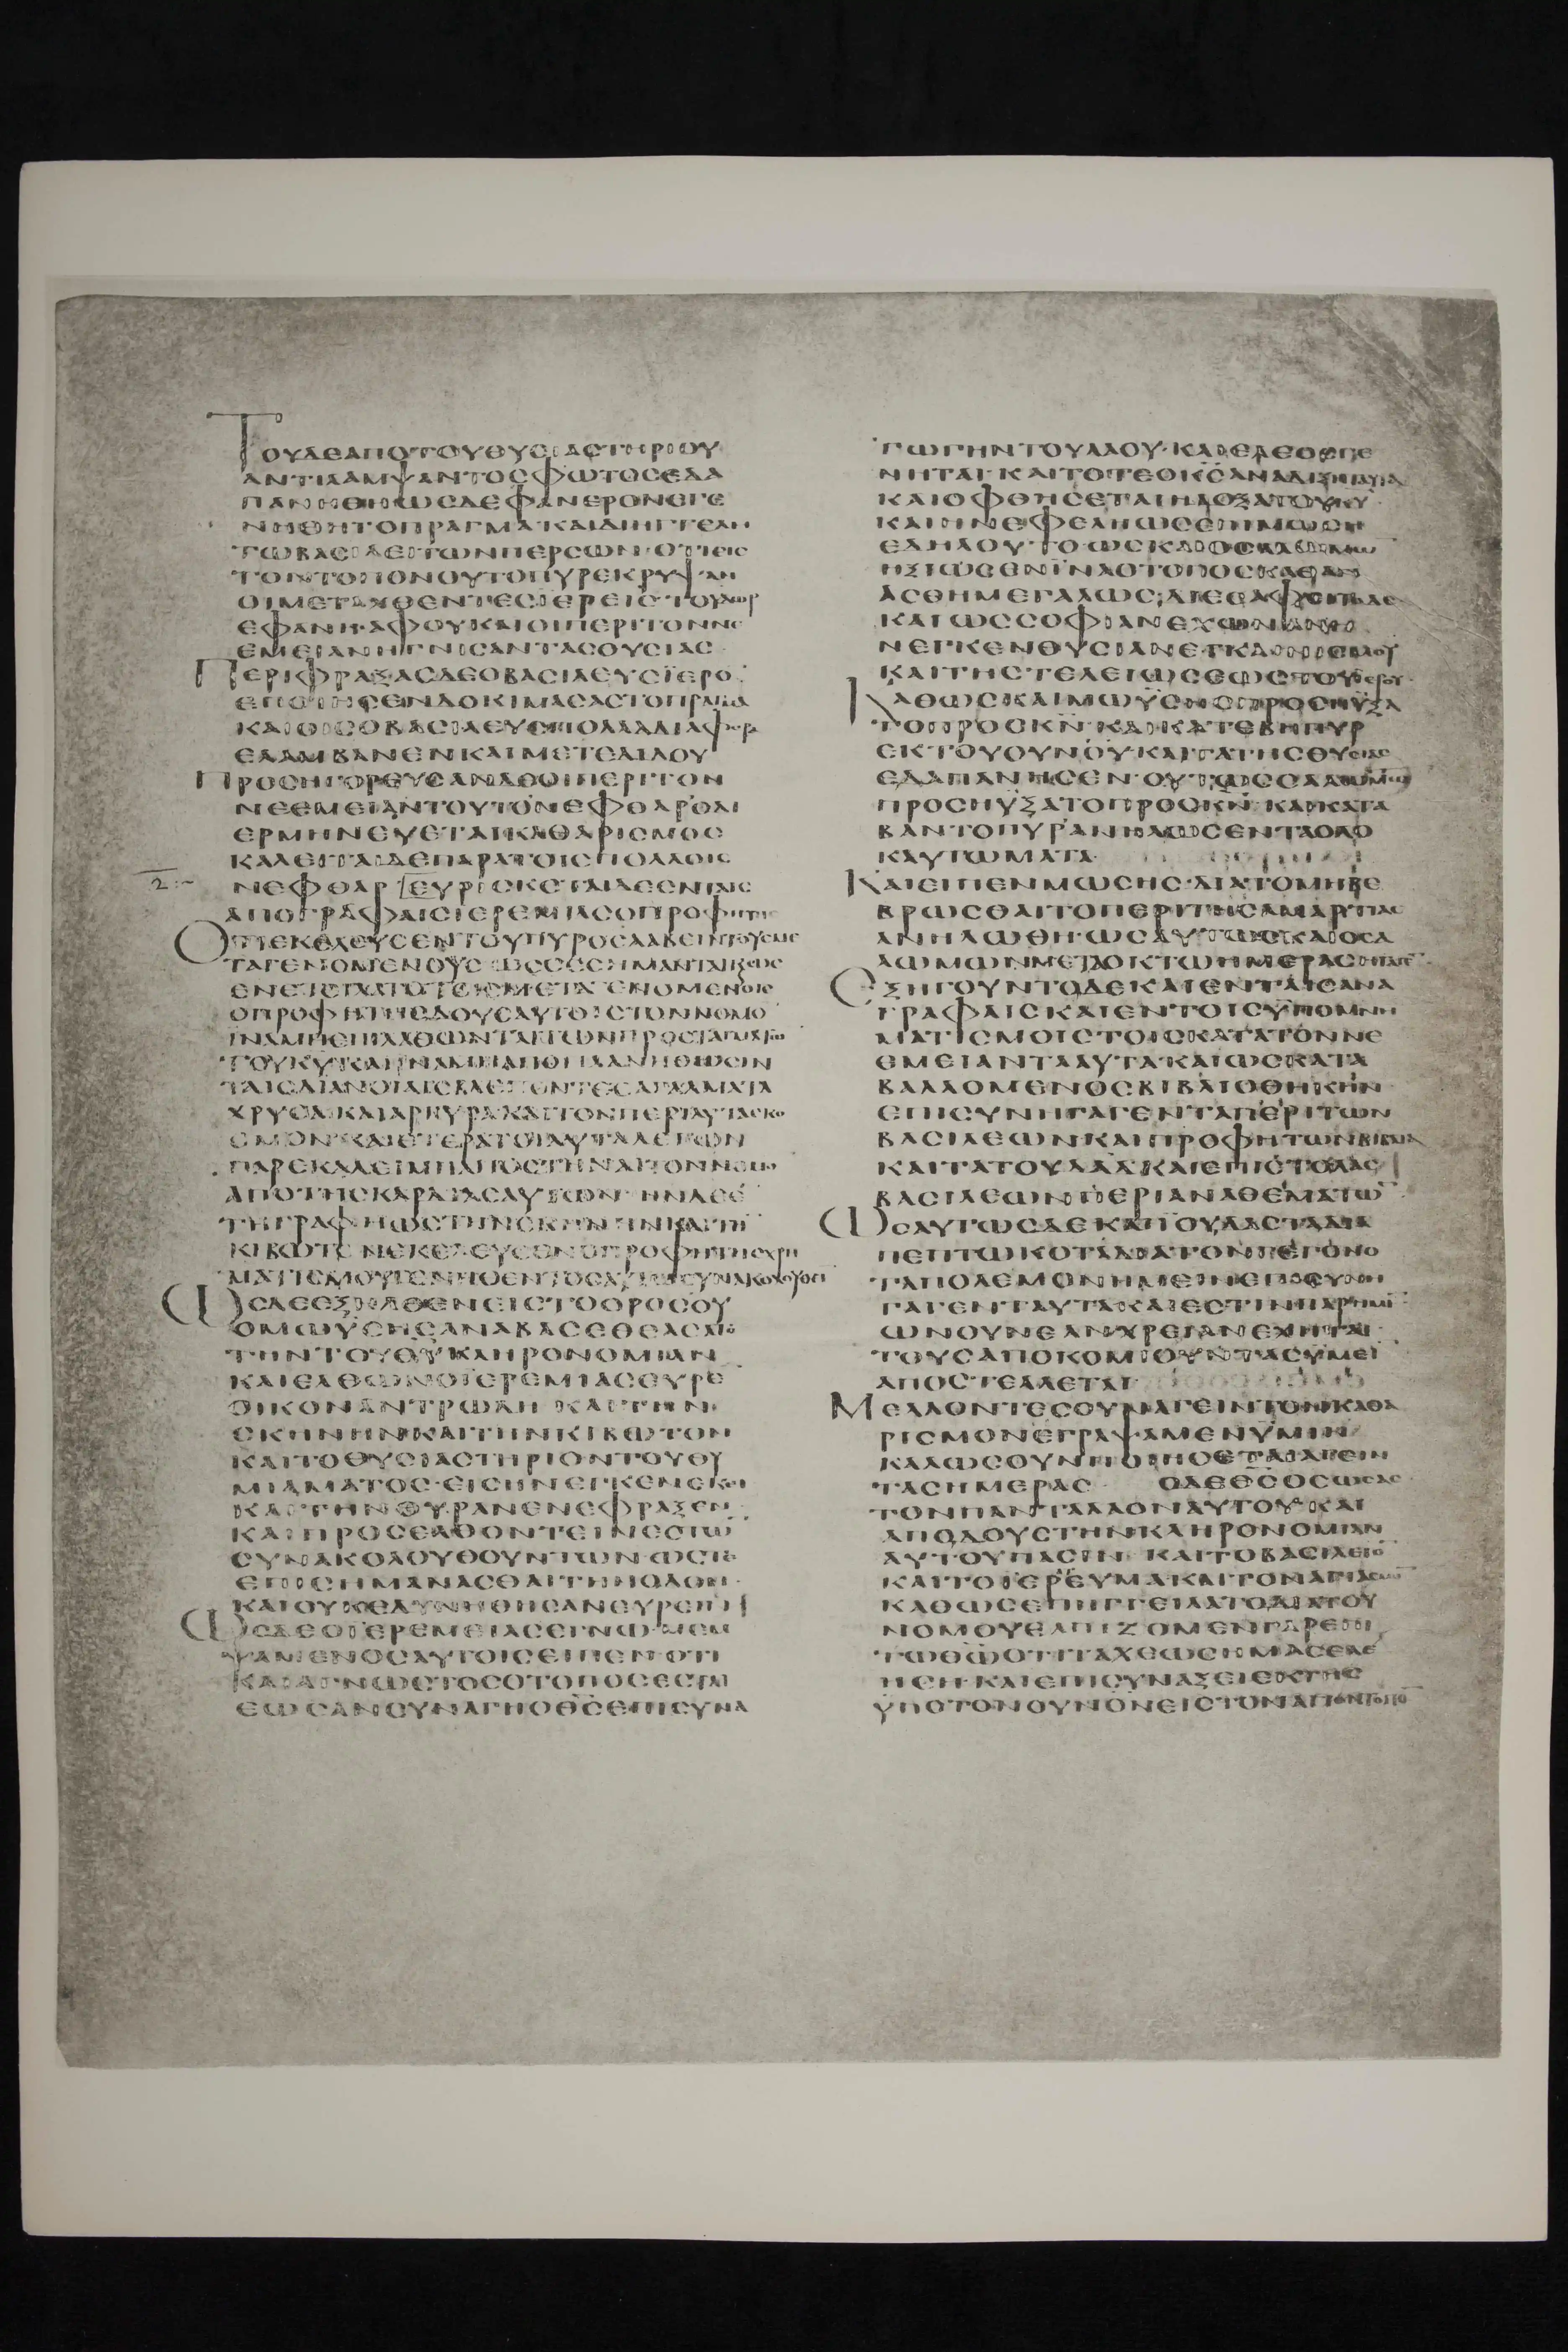 ΤΟΥΔΕΑΠΟΤΟΥΘΥΣΙΑΣΤΗΡΙΟΥ
ΑΝΤΙΛΑΜΨΑΝΤΟΣΦΩΤΟΣΕΔΑ
ΠΑΝΗΘΗΩΣΔΕΦΑΝΕΡΟΝΕΓΕ
ΝΗΘΗΤΟΠΡΑΓΜΑΚΑΙΔΙΗΓΓΕΛΗ
ΤΩΒΑΣΙΛΕΙΤΩΝΠΕΡΣΩΝΟΤΙΕΙΣ
ΤΟΝΤΟΠΟΝΟΥΤΟΠΥΡΕΚΡΥΨΑΝ
ΟΙΜΕΤΑΧΘΕΝΤΕΣΙΕΡΕΙΣΤΟΥΔΩΡ
ΕΦΑΝΗ·ΑΦΟΥΚΑΙΟΙΠΕΡΙΤΟΝΝΕ
ΕΜΕΙΑΝΗΓΝΙΣΑΝΤΑΣΟΥΣΙΑΣ
ΠΕΡΙΦΡΑΞΑΣΔΕΟΒΑΣΙΛΕΥΣΪΕΡΟ
ΕΠΟΙΗΣΕΝΔΟΚΙΜΑΣΑΣΤΟΠΡΑΓΜΑ
ΚΑΙΟΙΣΟΒΑΣΙΛΕΥΣΠΟΛΛΑΔΙΑΦΟΡ
ΕΛΑΜΒΑΝΕΝΚΑΙΜΕΤΕΔΙΔΟΥ
ΠΡΟΣΗΓΟΡΕΥΣΑΝΔΕΟΙΠΕΡΙΤΟΝ
ΝΕΕΜΕΙΑΝΤΟΥΤΟΝΕΦΘΑΡΟΑΙ
ΕΡΜΗΝΕΥΕΤΑΙΚΑΘΑΡΙΣΜΟΣ
ΚΑΛΕΙΤΑΙΔΕΠΑΡΑΤΟΙΣΠΟΛΛΟΙΣ
ΝΕΦΘΑΡ ΕΥΡΙΣΚΕΤΑΙΔΕΕΝΤΑΙΣ
ΑΠΟΓΡΑΦΑΙΣΙΕΡΕΜΙΑΣΟΠΡΟΦΗΤΗΣ
ΟΤΙΕΚΕΛΕΥΣΕΝΤΟΥΠΥΡΟΣΛΑΒΕΙΝΤΟΥΣΜΕ
ΤΑΓΕΝΟΜΕΝΟΥΣΩΣ
ΕΝΕΤΕΙΛΑΤΟΤΟΙΣΜΕΤΑΓΕΝΟΜΕΝΟΙΣ
ΟΠΡΟΦΗΤΗΣΔΟΥΣΑΥΤΟΙΣΤΟΝΝΟΜΟ
ΙΝΑΜΗΕΠΙΛΑΘΩΝΤΑΙΤΩΝΠΡΟΣΤΑΓΜΑΤΩ
ΤΟΥΚΥΚΑΙΙΝΑΜΗΑΠΟΠΛΑΝΗΘΩΣΙΝ
ΤΑΙΣΔΙΑΝΟΙΑΙΣΒΛΕΠΟΝΤΕΣΑΓΑΛΜΑΤΑ
ΧΡΥΣΑΚΑΙΑΡΓΥΡΑΚΑΙΤΟΝΠΕΡΙΑΥΤΑΣΚΟ
ΣΜΟΝΚΑΙΕΤΕΡΑΤΟΙΑΥΤΑΛΕΓΩΝ
ΠΑΡΕΚΑΛΕΙΜΗΑΠΟΣΤΗΝΑΙΤΟΝΝΟΜΟ
ΑΠΟΤΗΣΚΑΡΔΙΑΣΑΥΤΩΝ ΗΝΔΕΕ
ΤΗΓΡΑΦΗΩΣΤΗΝΣΚΗΝΗΝΚΑΙΤΗ
ΚΙΒΩΤΟΝΕΚΕΛΕΥΣΕΝΟΠΡΟΦΗΤΗΣΧΡΗ
ΜΑΤΙΣΜΟΥΓΕΝΗΘΕΝΤΟΣΑΥΤΩΣΥΝΑΚΟΛΟΥΘΕΙ
ΩΣΔΕΕΞΗΛΘΕΝΕΙΣΤΟΟΡΟΣΟΥ
ΟΜΩΫΣΗΣΑΝΑΒΑΣΕΘΕΑΣΑΤΟ
ΤΗΝΤΟΥΘΥΚΛΗΡΟΝΟΜΙΑΝ
ΚΑΙΕΛΘΩΝΟΪΕΡΕΜΙΑΣΕΥΡΕ
ΟΙΚΟΝΑΝΤΡΩΔΗ ΚΑΙΤΗΝ
ΣΚΗΝΗΝΚΑΙΤΗΝΚΙΒΩΤΟΝ
ΚΑΙΤΟΘΥΣΙΑΣΤΗΡΙΟΝΤΟΥΘΥ
ΜΙΑΜΑΤΟΣ·ΕΙΣΗΝΕΓΚΕΝΕΚΕΙ
ΚΑΙΤΗΝΘΥΡΑΝΕΝΕΦΡΑΞΕΝ
ΚΑΙΠΡΟΣΕΛΘΟΝΤΕΣΤΙΝΕΣΤΩ
ΣΥΝΑΚΟΛΟΥΘΟΥΝΤΩΝΩΣΤΕ
ΕΠΙΣΗΜΑΝΑΣΘΑΙΤΗΝΟΔΟΝ
ΚΑΙΟΥΚΕΔΥΝΗΘΗΣΑΝΕΥΡΕΙΝ
ΩΣΔΕΟΪΕΡΕΜΕΙΑΣΕΓΝΩΜΕΜ
ΨΑΜΕΝΟΣΑΥΤΟΙΣΕΙΠΕΝΟΤΙ
ΚΑΙΑΓΝΩΣΤΟΣΟΤΟΠΟΣΕΣΤΑΙ
ΕΩΣΑΝΣΥΝΑΓΗΟΘΣΕΠΙΣΥΝΑ
ΓΩΓΗΝΤΟΥΛΑΟΥ·ΚΑΙΕΛΕΟΣΓΕ
ΝΗΤΑΙ·ΚΑΙΤΟΤΕΟΚΣΑΝΑΔΙΞΗΤΑΥΤΑ
ΚΑΙΟΦΘΗΣΕΤΑΙΗΔΟΞΑΤΟΥΚΥ
ΚΑΙΗΝΕΦΕΛΗΩΣΕΠΙΜΩΣΗ
ΕΔΗΛΟΥΤΟΩΣΚΑΙΟΣΑΛΩΜΩ
ΗΞΙΩΣΕΝΪΝΑΟΤΟΠΟΣΚΑΘΑΓΙ
ΑΣΘΗΜΕΓΑΛΩΣ;ΔΙΕΣΑΦΕΙΤΟΔΕ
ΚΑΙΩΣΣΟΦΙΑΝΕΧΩΝΑΝΗ
ΝΕΓΚΕΝΘΥΣΙΑΝΕΓΚΑΙΝΙΣΜΟΥ
ΚΑΙΤΗΣΤΕΛΕΙΩΣΕΩΣΤΟΥΙΕΡΟΥ·
ΚΑΘΩΣΚΑΙΜΩΫΣΗΣΠΡΟΣΗΥΞΑ
ΤΟΠΡΟΣΚΝ·ΚΑΙΚΑΤΕΒΗΠΥΡ
ΕΚΤΟΥΟΥΝΟΥΚΑΙΤΑΤΗΣΘΥΣΙΑΣ
ΕΔΑΠΑΝΗΣΕΝ·ΟΥΤΩΣΣΑΛΩΜΩ
ΠΡΟΣΗΥΞΑΤΟΠΡΟΣΚΝ·ΚΑΙΚΑΤΑ
ΒΑΝΤΟΠΥΡΑΝΗΛΩΣΕΝΤΑΟΛΟ
ΚΑΥΤΩΜΑΤΑ
ΚΑΙΕΙΠΕΝΜΩΣΗΣ·ΔΙΑΤΟΜΗΒΕ
ΒΡΩΣΘΑΙΤΟΠΕΡΙΤΗΣΑΜΑΡΤΙΑΣ
ΑΝΗΛΩΘΗ·ΩΣΑΥΤΩΣΚΑΙΟΣΑ
ΛΩΜΩΝΜΕΤΑΟΚΤΩΗΜΕΡΑΣ
ΕΞΗΓΟΥΝΤΟΔΕΚΑΙΕΝΤΑΙΣΑΝΑ
ΓΡΑΦΑΙΣΚΑΙΕΝΤΟΙΣΫΠΟΜΝΗ
ΜΑΤΙΣΜΟΙΣΤΟΙΣΚΑΤΑΤΟΝΝΕ
ΕΜΕΙΑΝΤΑΑΥΤΑ·ΚΑΙΩΣΚΑΤΑ
ΒΑΛΛΟΜΕΝΟΣΒΙΒΛΙΟΘΗΚΗΝ
ΕΠΙΣΥΝΗΓΑΓΕΝΤΑΠΕΡΙΤΩΝ
ΒΑΣΙΛΕΩΝΚΑΙΠΡΟΦΗΤΩΝΒΙΒΛΙΑ
ΚΑΙΤΑΤΟΥΔΑΔΚΑΙΕΠΙΣΤΟΛΑΣ
ΒΑΣΙΛΕΩΝΠΕΡΙΑΝΑΘΕΜΑΤΩ
ΩΣΑΥΤΩΣΔΕΚΑΙΪΟΥΔΑΣΤΑΔΙΑ
ΠΕΠΤΩΚΟΤΑΔΙΑΤΟΝΓΕΓΟΝΟ
ΤΑΠΟΛΕΜΟΝΗΜΕΙΝΕΠΙΣΥΝΗ
ΓΑΓΕΝΤΑΥΤΑΚΑΙΕΣΤΙΝΠΑΡΗΜΙ
ΩΝΟΥΝΕΑΝΧΡΕΙΑΝΕΧΗΤΑΙ
ΤΟΥΣΑΠΟΚΟΜΙΟΥΝΤΑΣΥΜΕΙ
ΑΠΟΣΤΕΛΛΕΤΑΙ
ΜΕΛΛΟΝΤΕΣΟΥΝΑΓΕΙΝΤΟΝΚΑΘΑ
ΡΙΣΜΟΝΕΓΡΑΨΑΜΕΝΥΜΙΝ
ΚΑΛΩΣΟΥΝΠΟΙΗΣΕΤΑΙΑΓΕΙΝ
ΤΑΣΗΜΕΡΑΣ ΟΔΕΘΣΟΣΩΣΑΣ
ΤΟΝΠΑΝΤΑΛΑΟΝΑΥΤΟΥ·ΚΑΙ
ΑΠΟΔΟΥΣΤΗΝΚΛΗΡΟΝΟΜΙΑΝ
ΑΥΤΟΥΠΑΣΙΝ ΚΑΙΤΟΒΑΣΙΛΕΙΟ
ΚΑΙΤΟΪΕΡΕΥΜΑΚΑΙΤΟΝΑΓΙΑΣΜΟ
ΚΑΘΩΣΕΠΗΓΓΕΙΛΑΤΟΔΙΑΤΟΥ
ΝΟΜΟΥΕΛΠΙΖΟΜΕΝΓΑΡΕΠΙ
ΤΩΘΩΟΤΙΤΑΧΕΩΣΗΜΑΣΕΛΕ
ΗΣΗ·ΚΑΙΕΠΙΣΥΝΑΞΕΙΕΚΤΗΣ
ΫΠΟΤΟΝΟΥΝΟΝΕΙΣΤΟΝΑΓΙΟΝΤΟΠΟ